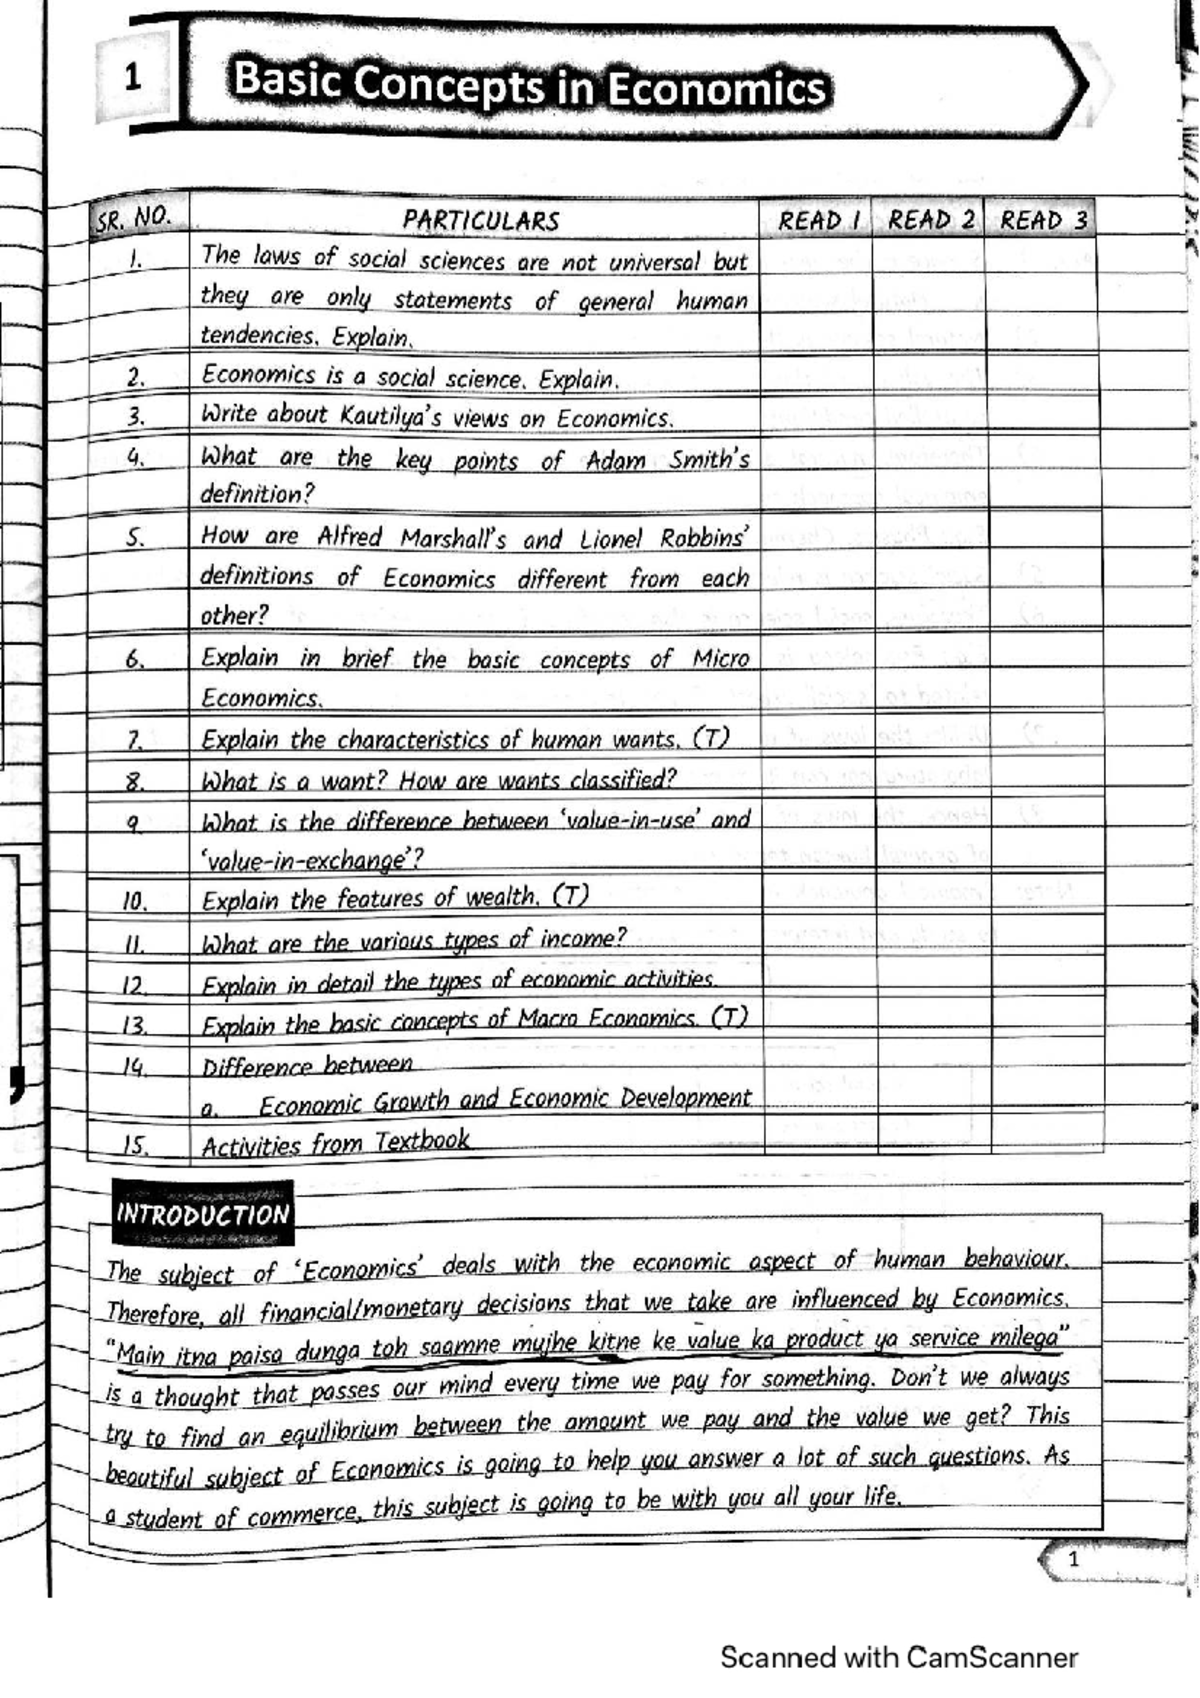 1
Basic Concepts in Economics
SR. NO. PARTICULARS READ 1 READ 2 READ 3
1. The laws of social sciences are not universal but
they are only statements of general human
tendencies. Explain.
2. Economics is a social science. Explain.
3. Write about Kautilya's views on Economics.
4. What are the key points of Adam Smith's
definition?
5. How are Alfred Marshall's and Lionel Robbins'
definitions of Economics different from each
other?
6. Explain in brief the basic concepts of Micro
Economics.
7. Explain the characteristics of human wants. (T)
8. What is a want? How are wants classified?
9 What is the difference between 'value-in-use' and
'value-in-exchange'?
10. Explain the features of wealth. (T)
11. What are the various types of income?
12. Explain in detail the types of economic activities.
13. Explain the basic concepts of Macro Economics. (T)
14. Difference between
a. Economic Growth and Economic Development
15. Activities from Textbook
INTRODUCTION
The subject of 'Economics' deals with the economic aspect of human behaviour.
Therefore, all financial/monetary decisions that we take are influenced by Economics.
"Main itna paisa dunga toh saamne mujhe kitne ke value ka product ya service milega"
is a thought that passes our mind every time we pay for something. Don't we always
try to find an equilibrium between the amount we pay and the value we get? This
beautiful subject of Economics is going to help you answer a lot of such questions. As
a student of commerce, this subject is going to be with you all your life.
1
Scanned with CamScanner